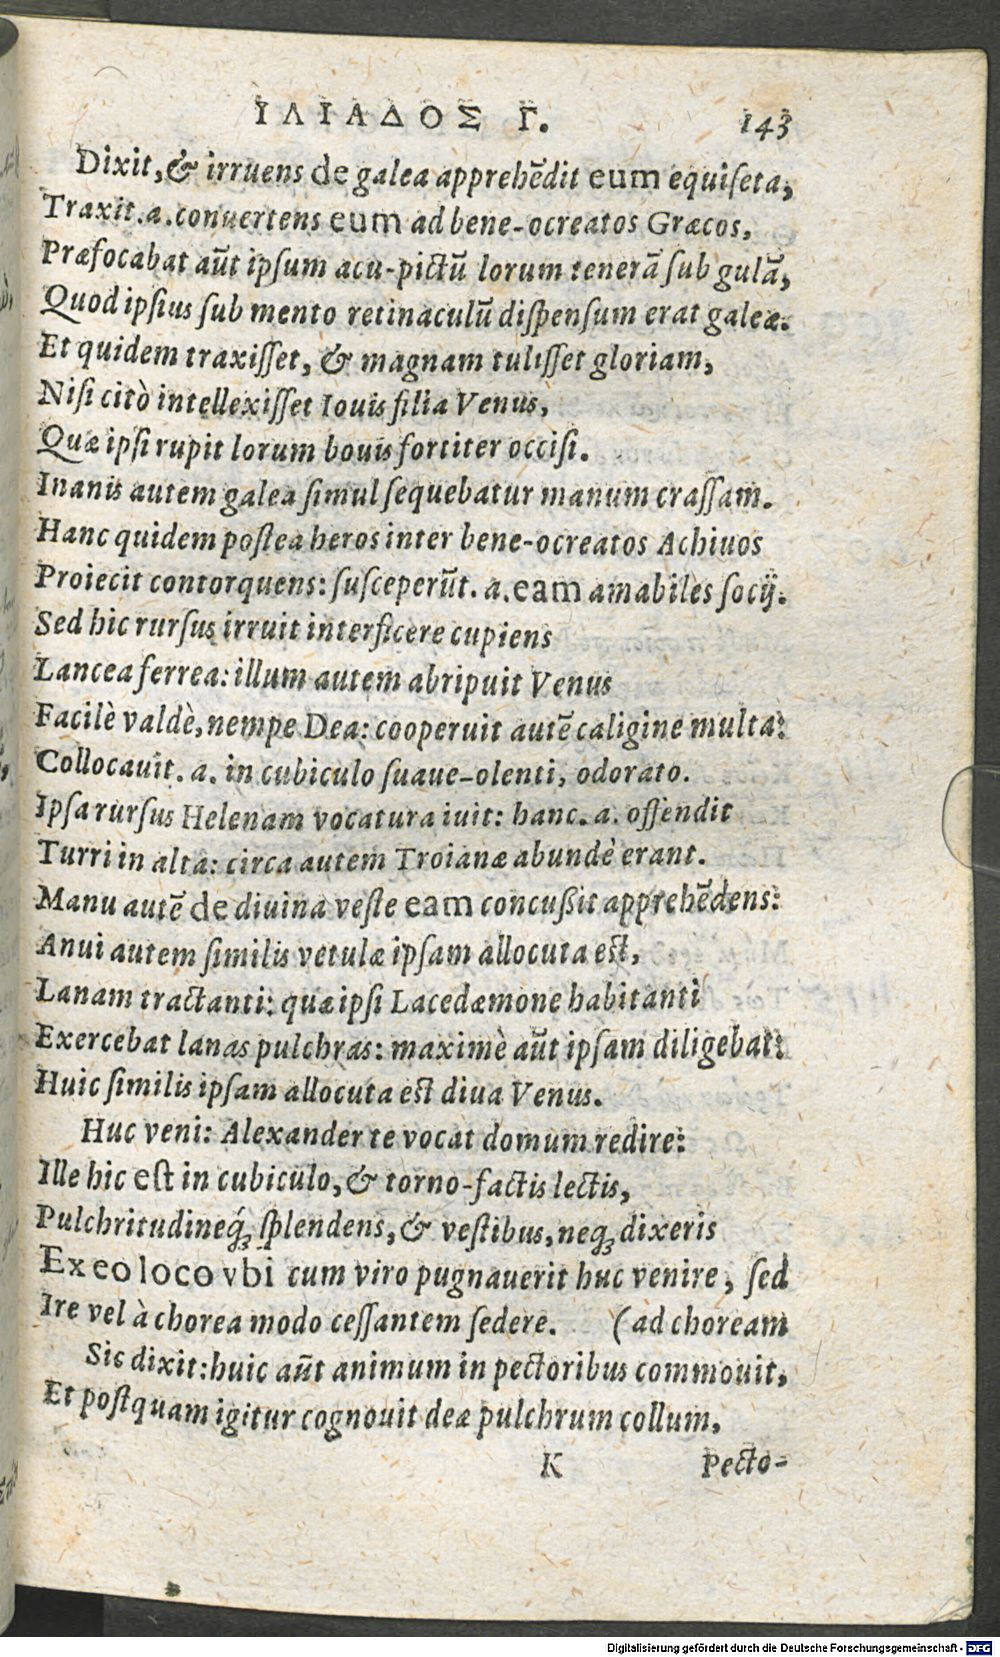 ΙΛΙΑΔΟΣ Γ. 143
Dixit, & irruens de galea apprehēdit eum equiseta,
Traxit .a. conuertens eum ad bene-ocreatos Græcos,
Præfocabat aūt ipsum acu-pictū lorum tenerā sub gulā,
Quod ipsius sub mento retinaculū dispensum erat galeæ.
Et quidem traxisset, & magnam tulisset gloriam,
Nisi citò intellexisset Iouis filia Venus,
Quæ ipsi rupit lorum bouis fortiter occisi.
Inanis autem galea simul sequebatur manum crassam.
Hanc quidem postea heros inter bene-ocreatos Achiuos
Proiecit contorquens: susceperūt .a. eam amabiles socij.
Sed hic rursus irruit interficere cupiens
Lancea ferrea: illum autem abripuit Venus
Facilè valdè, nempe Dea: cooperuit autē caligine multa:
Collocauit .a. in cubiculo suaue-olenti, odorato.
Ipsa rursus Helenam vocatura iuit: hanc .a. offendit
Turri in alta: circa autem Troianæ abundè erant.
Manu autē de diuina veste eam concussit apprehēdens:
Anui autem similis vetulæ ipsam allocuta est,
Lanam tractanti: quæ ipsi Lacedæmone habitanti
Exercebat lanas pulchras: maximè aūt ipsam diligebat:
Huic similis ipsam allocuta est diua Venus.
Huc veni: Alexander te vocat domum redire:
Ille hic est in cubiculo, & torno-factis lectis,
Pulchritudineq́; splendens, & vestibus, neq; dixeris
Ex eo loco vbi cum viro pugnauerit huc venire, sed
Ire vel à chorea modo cessantem sedere. (ad choream
Sic dixit: huic aūt animum in pectoribus commouit,
Et postquam igitur cognouit deæ pulchrum collum,
K Pecto-
Digitalisierung gefördert durch die Deutsche Forschungsgemeinschaft - DFG